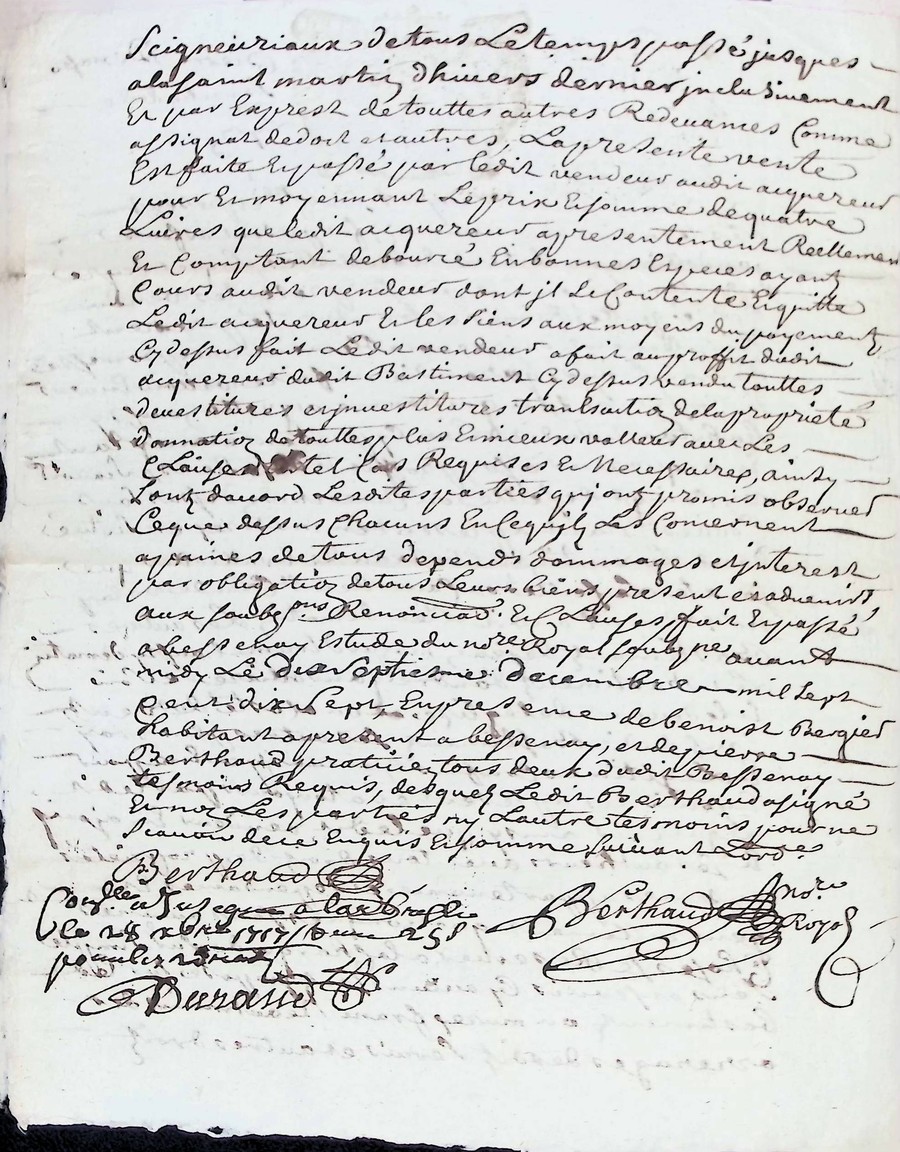 Seigneuriaux de tous Le temps passé jusques
a la saint martin dhivers dernier jnclusivement
Et par Exprest de touttes autres Redevances Comme
assignat de dot et autres, La presente vente
Est faite Et passé par ledit vendeur audit acquereur
pour Et moyennant Le prix Et somme de quatre
Livres que ledit acquereur a presentement Reellement
Et Comptant debourcé En bonnes Especes ayant
Cours audit vendeur dont jl Se Contente Et quitte
Ledit acquereur Et les siens aux moyens du payement
Cy dessus fait Ledit vendeur a fait au proffit dudit
acquereur dudit Bastiment Cy dessus vendu touttes
devestitures et jnvestitures translaction de la proprieté
donnation de touttes plus Et mieux valleur avec Les
Clauses tel Cas Requises Et Necessaires, ainsy
Sont daccord Lesdites parties qui ont promis observer
Ce que dessus Chacuns En Ce qui Les Concernent
a paines de tous depends dommages et jnterest
par obligation de tous Leurs biens present et advenirs
aux soubzons Renonciaôns Et Clauses, fait Et passé
a bessenay Estude du nore Royal soubzne avant
midy Le dix septiesme decembre mil sept
Cent dix sept En presence de benoist Bergier
habitant a present a bessenay, et de pierre
Berthaud praticien tous deux dudit Bessenay
tesmoins Requis, desquels Ledit Berthaud a signé
Et non Les parties ny Lautre tesmoins pour ne
Scavoir de ce Enquis Et somme suivant Lordce
Berthaud
Conlle a la
le 28 xbre 1717
Berthaud nore Royal
Durand